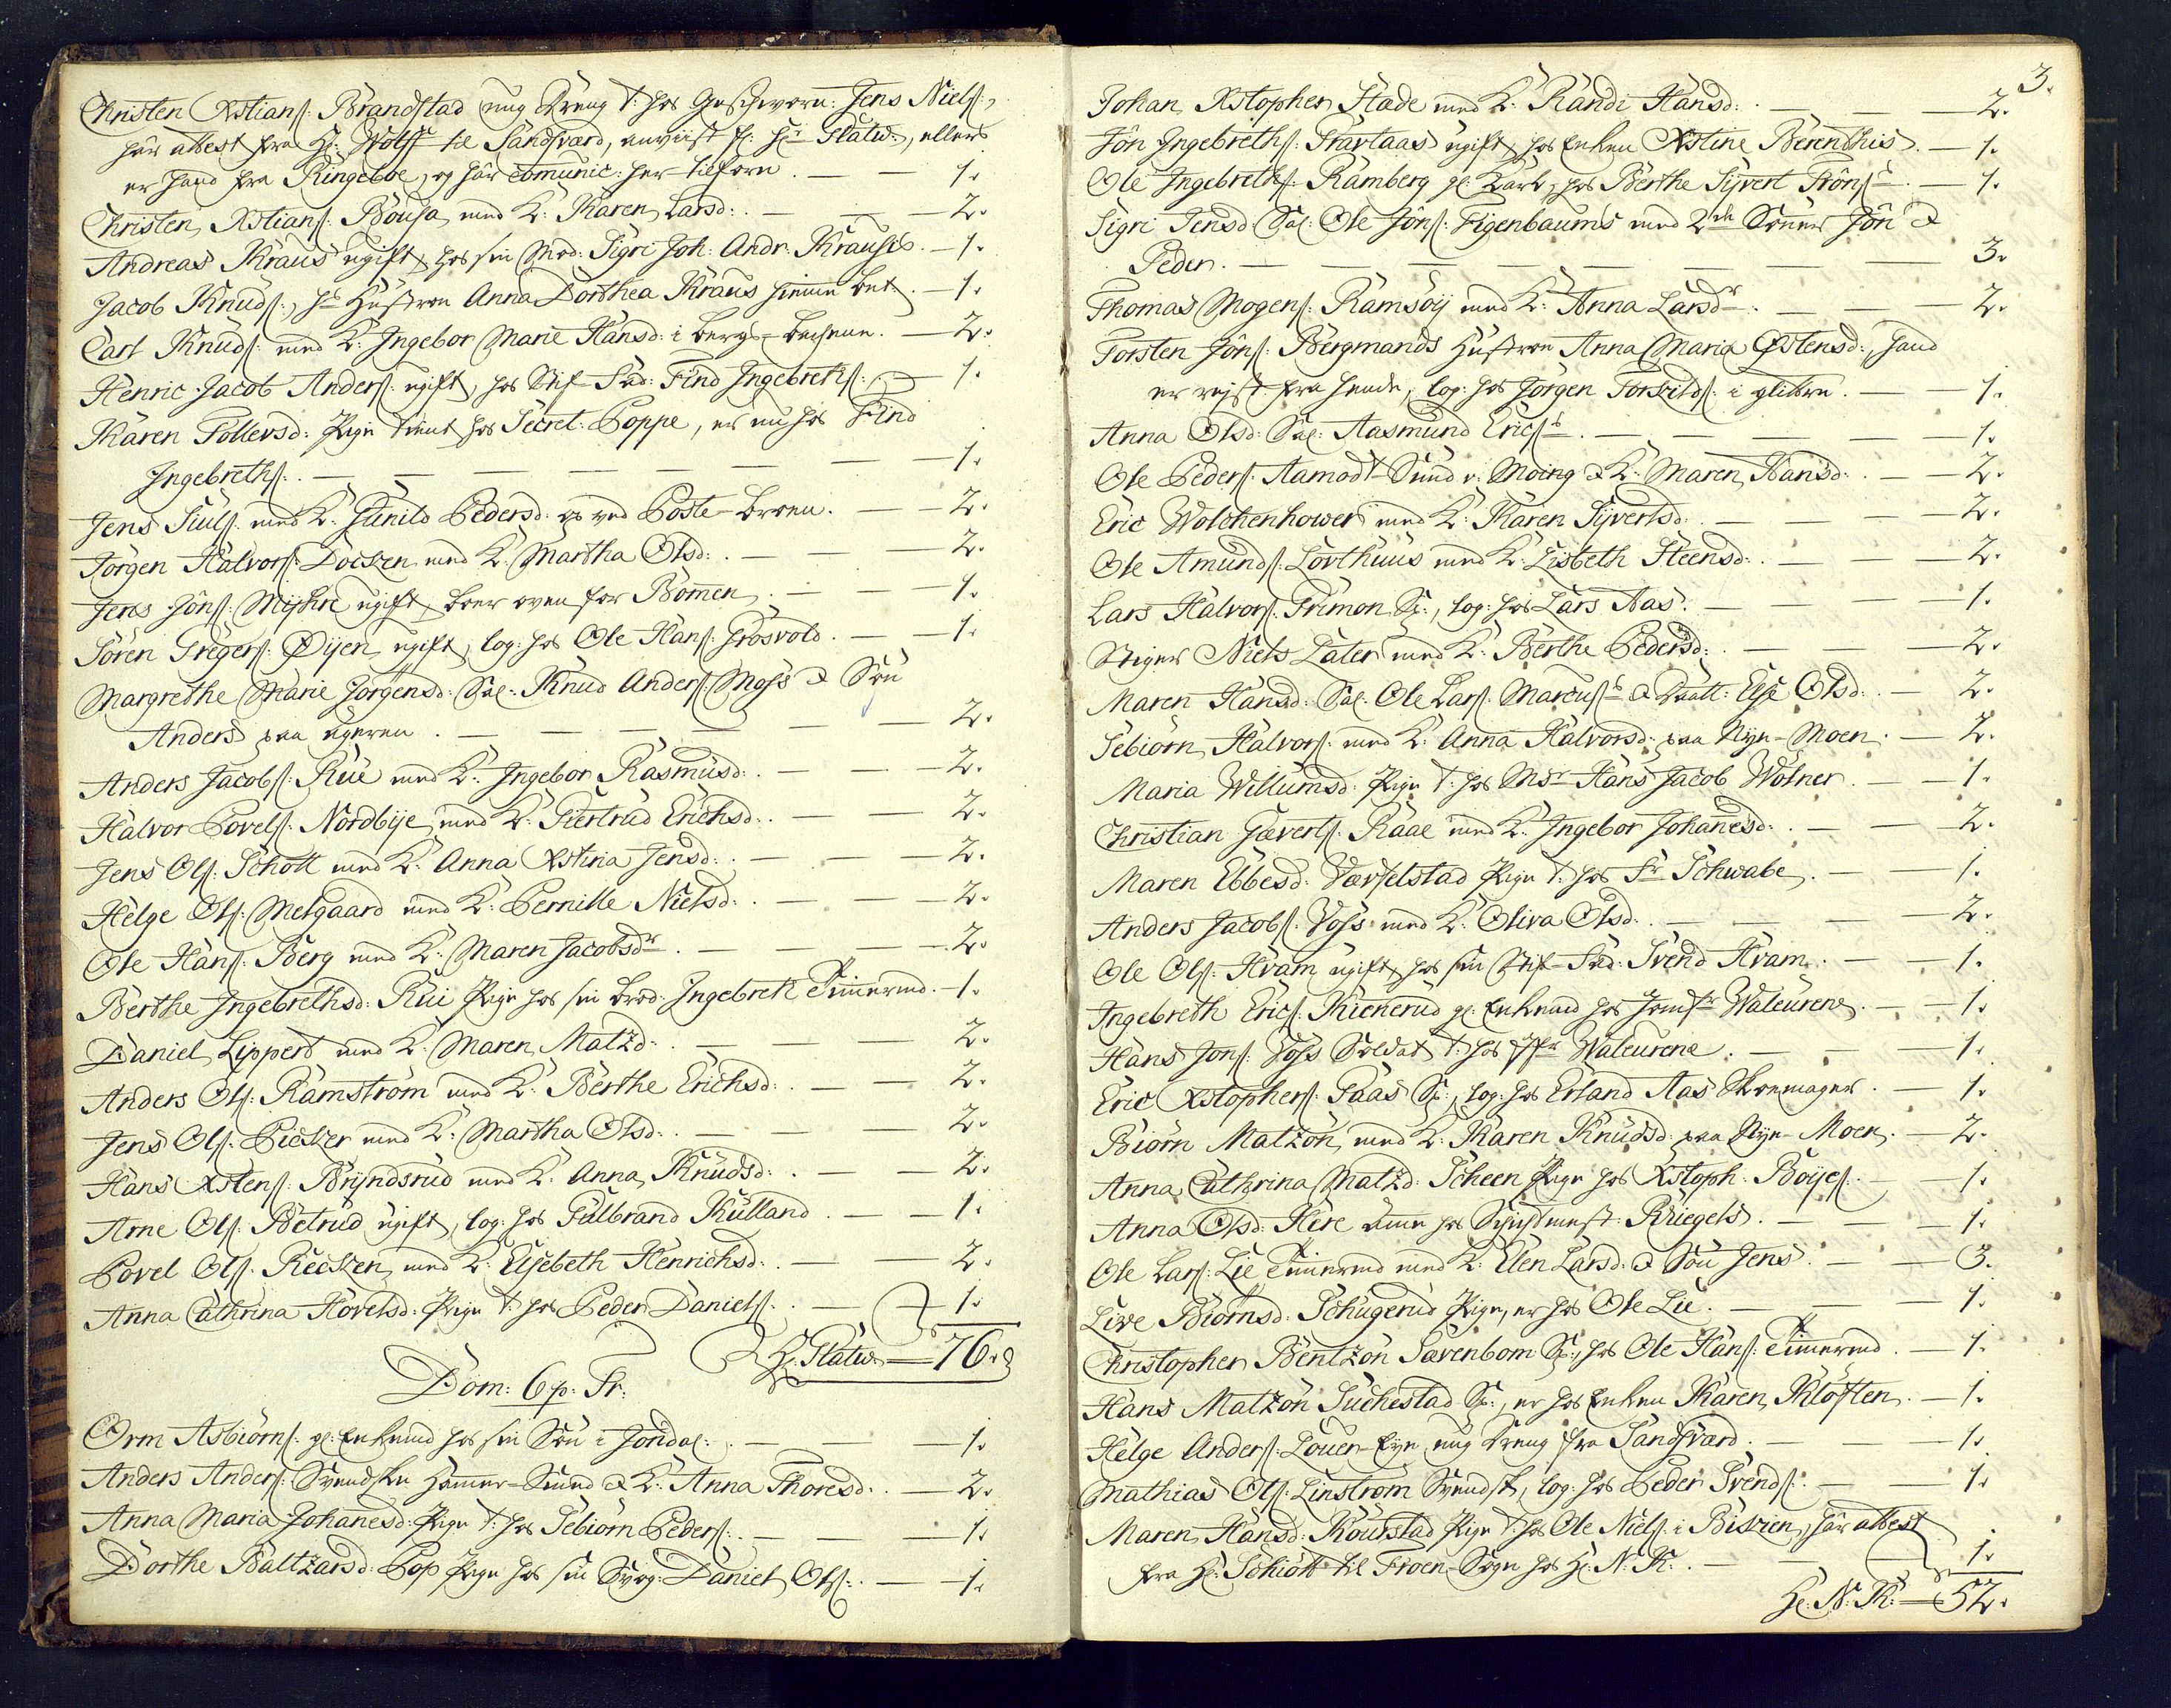 Christen Xstians: Brandstad ung Dreng t: hos Geschworn: Jens Niels:,
har attest fra Hr: Wolff til Sandsverd, anviist fl: Hr Statw:, ellers
er hand fra Ringeboe, og har comunic: her tilforn. — — 1.
Christen Xstians: Bousa med K: Karen Larsd: — — 2.
Andreas Kraus ugift, hos sin Mod: Sigri Joh: Andr: Krauses. — 1.
Jacob Knuds:, hs Hustroe Anna Dorthea Kraus hiemme bet. — 1.
Carl Knuds: med K: Ingebor Marie Hansd: i bergs-bachene. — 2.
Henric Jacob Anders: ugift, hos Stif-Fad: Find Ingebreths: — 1.
Karen Tollevsd: Pige tient hos Secret: Poppe, er nu hos Find
Ingebreths: — — — — — — 1.
Jens Siuls: med K: Gunild Pedersd: op ved Poste-broen. — 2.
Jörgen Halvors: Docken med K: Martha Olsd: — — — 2.
Jens Jöns: Myhre ugift, boer oven for Bommen. — — 1.
Sören Gregers: Øyen ugift, log: hos Ole Hans: Grosvold. — — 1.
Margrethe Marie Jorgensd: Sal: Knud Anders: Moss & Sön
Anders paa ageren. — — — — — 2.
Anders Jacobs: Rue med K: Ingebor Rasmusd: — — — 2.
Halvor Povels: Nordbye med K: Giertrud Erichsd: — — 2.
Jens Ols: Schott med K: Anna Xstina Jensd: — — — 2.
Helge Ols: Melgaard med K: Pernille Nielsd: — — — 2.
Ole Hans: Berg med K: Maren Jacobsdr — — — 2.
Berthe Ingebrethsd: Rui Pige hos sin brod: Ingebreth Timmermd. — 1.
Daniel Lippert med K: Maren Matzd: — — — 2.
Anders Ols: Ramström med K: Berthe Erichsd: — — 2.
Jens Ols: Piecker med K: Martha Olsd: — — — 2.
Hans Xstens: Bryndsrud med K: Anna Knudsd: — — 2.
Arne Ols: Betrud ugift, log: hos Gulbrand Kulland — — 1.
Povel Ols: Reecken med K: Elsebeth Henrichsd: — — 2.
Anna Cathrina Hovelsd: Pige t: hos Peder Daniels: — — 1.
Hr: Statw: — 76.
Dom: 6 p: Tr:
Orm Asbiörns: gl: Enkemd hos sin Sön i Jondal: — — 1.
Anders Anders: Svendske Hammer-Smed & K: Anna Thoresd: — 2.
Anna Maria Johanesd: Pige t: hos Sebiörn Peders: — — 1.
Dorthe Baltzarsd: Pop Pige hos sin Svog: Daniel Ols: — — 1.
3.
Johan Xstopher Stade med K: Randi Hansd: — — 2.
Jön Ingebreths: Travlaas ugift, hos Enken Xstine Berendthis. — 1.
Ole Ingebreths: Ramberg gl: Karl, hos Berthe Syvert Trönss — 1.
Sigri Jensd: Sal: Ole Jöns: Figenbaums med 2de Sönner Jön &
Peder. — — — — — — 3.
Thomas Mogens: Ramsöy med K: Anna Larsdr — — — 2.
Torsten Jöns: Bergmands Hustroe Anna Maria Østensd:, hand
er reist fra hende, log: hos Jörgen Torkilds: i glittre. — 1.
Anna Olsd: Sal: Aasmund Ericss — — — — 1.
Ole Peders: Aamodt Smed v: Moing & K: Maren Hansd: — 2.
Eric Wolchenhower med K: Karen Syvertsd: — — — 2.
Ole Amunds: Lovthuus med K: Lisbeth Steensd: — — 2.
Lars Halvors: Trimon Sv:, log: hos Lars Aas. — — 1.
Stiger Niels Later med K: Berthe Pedersd: — — — 2.
Maren Hansd: Sal: Ole Lars: Marcuss & Daatt: Else Olsd: — 2.
Sebiörn Halvors: med K: Anna Halvorsd: paa Nye-Moen. — 2.
Maria Willumsd: Pige t: hos Msr Hans Jacob Wolner. — — 1.
Christian Gæverts: Raae med K: Ingebor Johanesd: — — 2.
Maren Ebbesd: Værhelstad Pige t: hos Fr Schwabe. — — 1.
Anders Jacobs: Voss med K: Oliva Olsd: — — — 2.
Ole Ols: Hvam ugift, hos sin Stif-Fad: Svend Hvam. — — 1.
Ingebreth Erics: Kiennerud gl: Enkemd hos Jomfr Waleurene. — 1.
Hans Jons: Voss Soldat t: hos Jfr Waleurene. — — — 1.
Eric Xstophers: Faas Sv:, log: hos Erland Aas Skoemager. — 1.
Biörn Matzön med K: Karen Knudsd: paa Nye-Moen. — 2.
Anna Cathrina Matzd: Scheen Pige hos Xstoph: Boyes: — 1.
Anna Olsd: Here amme hos Schichtmest: Kriegels. — — 1.
Ole Lars: Lie Timmermd med K: Elen Larsd: & Sön Jens. — 3.
Live Biörnsd: Schugerud Pige, er hos Ole Lie. — — 1.
Christopher Bentzön Sævenbom Sv:, hos Ole Hans: Timmermd. — 1.
Hans Matzön Suchestad Sv:, er hos Enken Karen Klöften. — 1.
Helge Anders: Louen-Eye ung Dreng fra Sandsverd. — — 1.
Mathias Ols: Linström Svendsk, log: hos Peder Svends: — 1.
Maren Hansd: Kourstad Pige t: hos Ole Niels: i Bieien, har attest
fra Hr: Schiött til Froen-Sogn hos Hr: N: K: — — 1.
Hr: N: K: — 52.